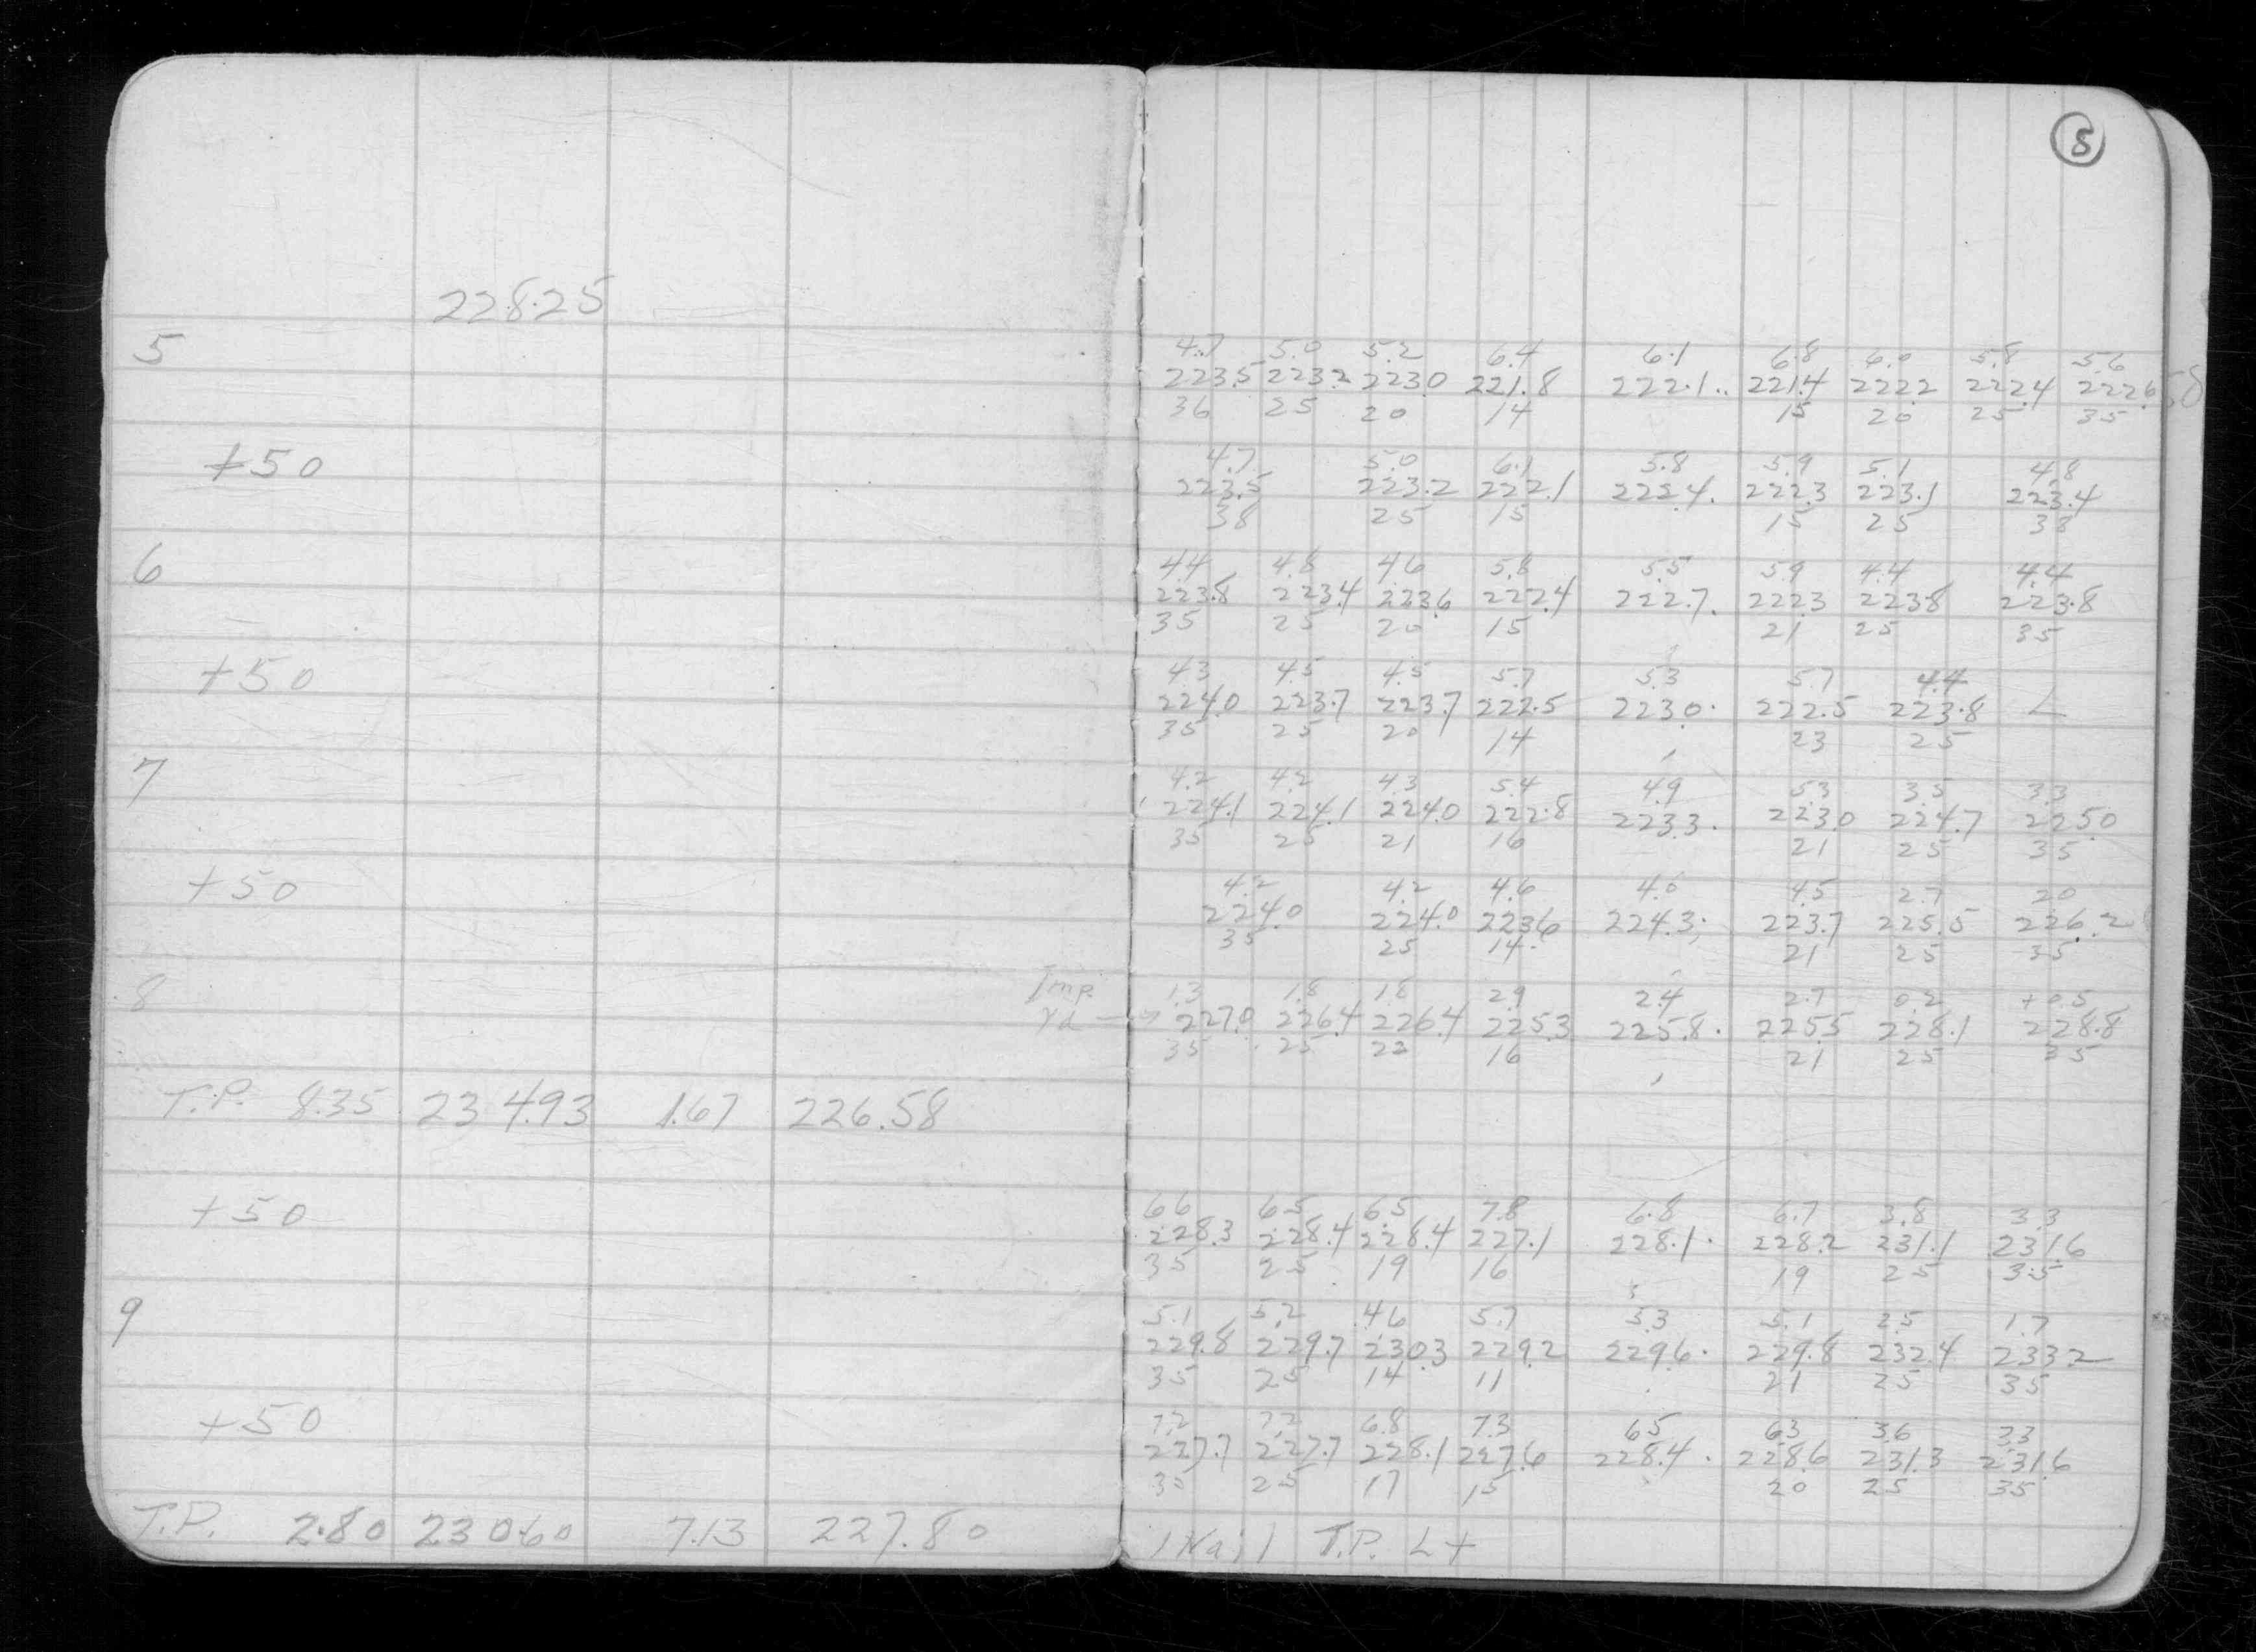 8
228.25
5
4.7 5.0 5.2 6.4 6.1 6.8 6.0 5.8 5.6
223.5 223.2 223.0 221.8 222.1 221.4 222.2 222.4 222.6
36 25 20 14 15 20 25 35
+50
4.7 5.0 6.1 5.8 5.9 5.1 4.8
223.5 223.2 222.1 222.4 222.3 223.1 223.4
38 25 15 15 25 38
6
4.4 4.8 4.6 5.8 5.5 5.9 4.4 4.4
223.8 223.4 223.6 222.4 222.7 222.3 223.8 223.8
35 25 20 15 21 25 35
+50
4.3 4.5 4.5 5.7 5.3 5.7 4.4
224.0 223.7 223.7 222.5 223.0 222.5 223.8 L
35 25 20 14 23 25
7
4.2 4.2 4.3 5.4 4.9 5.3 3.5 3.3
224.1 224.1 224.0 222.8 223.3 223.0 224.7 225.0
35 25 21 16 21 25 35
+50
4.2 4.2 4.6 4.0 4.5 2.7 2.0
224.0 224.0 223.6 224.3 223.7 225.5 226.2
35 25 14 21 25 35
8
Imp. 1.3 1.8 1.8 2.9 2.4 2.7 0.2 +0.5
Yd → 227.0 226.4 226.4 225.3 225.8 225.5 228.1 228.8
35 25 22 16 21 25 35
T.P. 8.35 234.93 1.67 226.58
+50
6.6 6.5 6.5 7.8 6.8 6.7 3.8 3.3
228.3 228.4 228.4 227.1 228.1 228.2 231.1 231.6
35 25 19 16 19 25 35
9
5.1 5.2 4.6 5.7 5.3 5.1 2.5 1.7
229.8 229.7 230.3 229.2 229.6 229.8 232.4 233.2
35 25 14 11 21 25 35
+50
7.2 7.2 6.8 7.3 6.5 6.3 3.6 3.3
227.7 227.7 228.1 227.6 228.4 228.6 231.3 231.6
35 25 17 15 20 25 35
T.P. 2.80 230.60 7.13 227.80
1 Nail T.P. Lt